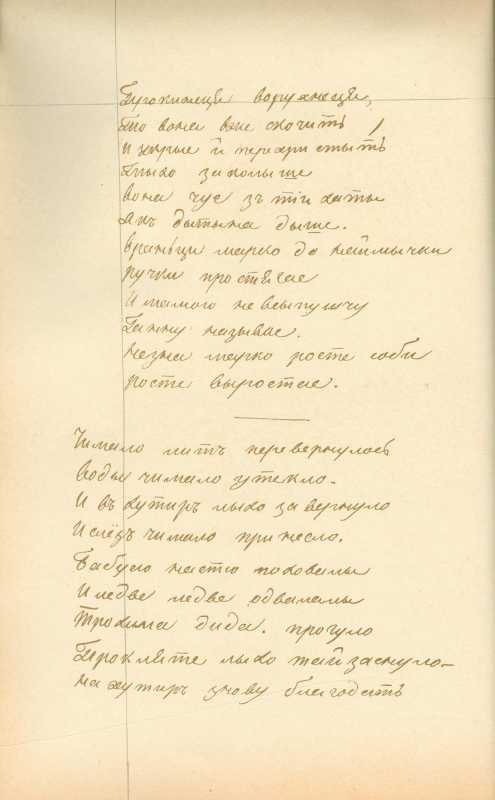 Прокинеця ворухнеця,
То вона вже скочить
И укрые й перехристыть
Тыхо заколыше
вона чує зъ тіи хаты
Якъ дытына дыше.
Вранъци марко до наймычки
ручки простягае
И мамою невсыпущу
Ганну называе.
незна марко росте соби
росте выростае.
Чимало литъ перевернулось
воды чимало утекло.
И въ хутиръ лыхо завернуло
И слёзъ чимало принесло.
Бабусю настю поховалы
И ледве ледве одвалалы
Трохима дида. прогуло
Прокляте лыхо тай заснуло
на хутиръ знову благодать